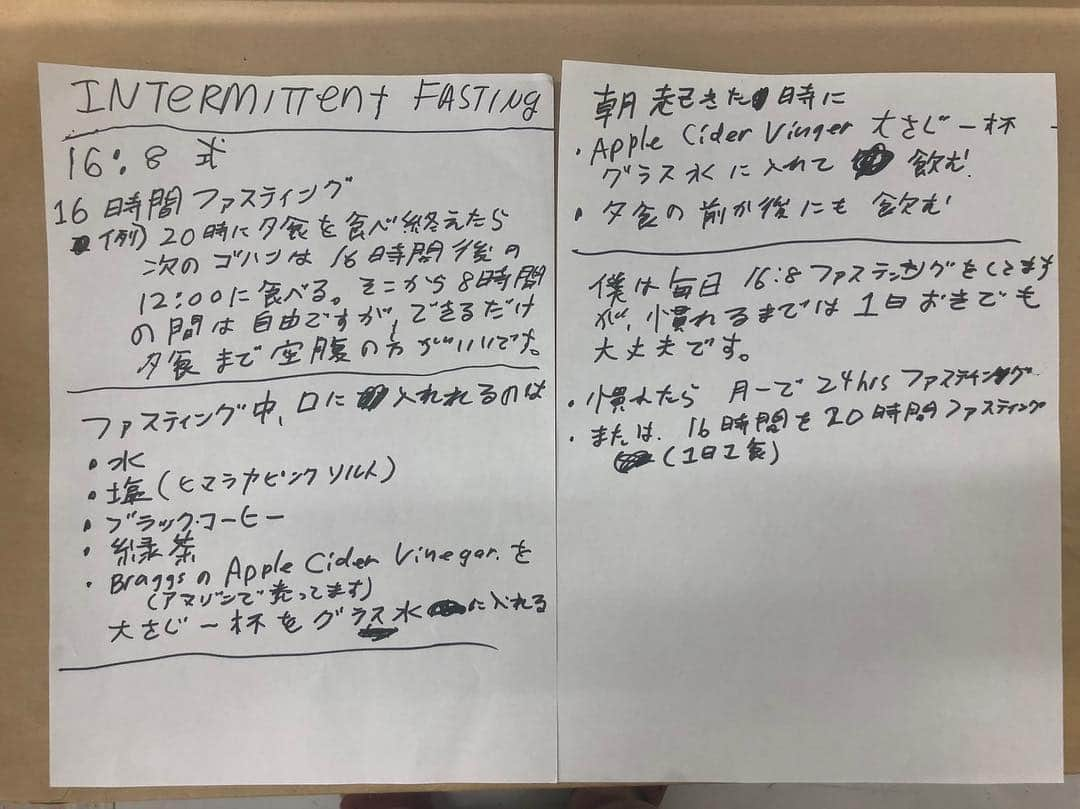 INTERMITTENT FASTING
16:8 式
16時間ファスティング
例) 20時に夕食を食べ終えたら
次のゴハンは16時間後の
12:00に食べる。そこから8時間
の間は自由ですが、できるだけ
夕食まで空腹の方がいいです。
ファスティング中、口に入れれるのは
・水
・塩(ヒマラヤピンクソルト)
・ブラック・コーヒー
・緑茶
・BraggsのApple Cider Vinegar.を
(アマゾンで売ってます)
大さじ一杯をグラス水に入れる
朝起きた時に
・Apple Cider Vinger 大さじ一杯
グラス水に入れて飲む!
・夕食の前か後にも飲む
僕は毎日16:8ファスティングをしてます
が、慣れるまでは1日おきでも
大丈夫です。
・慣れたら 月一で24hrsファスティング
・または、16時間を20時間ファスティング
(1日1食)